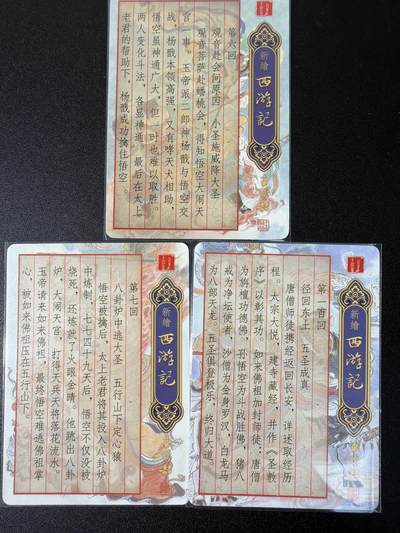 新繪
西游記
第六回
观音赴会问原因 小圣施威降大圣
观音菩萨赴蟠桃会，得知悟空大闹天
宫一事。玉帝派二郎神杨戬与悟空交
战，杨戬本领高强，又有哮天犬相助，
悟空虽神通广大，但一时也难以取胜。
两人变化斗法，各显神通，最后在太上
老君的帮助下，杨戬成功擒住悟空。
新繪
西游記
第七回
八卦炉中逃大圣 五行山下定心猿
悟空被擒后，太上老君将其投入八卦炉
中炼制，七七四十九天后，悟空不仅没被
烧死，还炼就了火眼金睛。他跳出八卦
炉，大闹天宫，打得天兵天将落花流水。
玉帝请来如来佛祖，最终悟空难逃佛祖掌
心，被如来佛祖压在五行山下。
新繪
西游記
第一百回
径回东土 五圣成真
唐僧师徒携经返回长安，详述取经历
程。太宗大悦，建寺藏经，并作《圣教
序》以彰其功。如来佛祖加封师徒：唐僧
为旃檀功德佛，孙悟空为斗战胜佛，猪八
戒为净坛使者，沙僧为金身罗汉，白龙马
为八部天龙，五圣俱登极乐，终归大道。